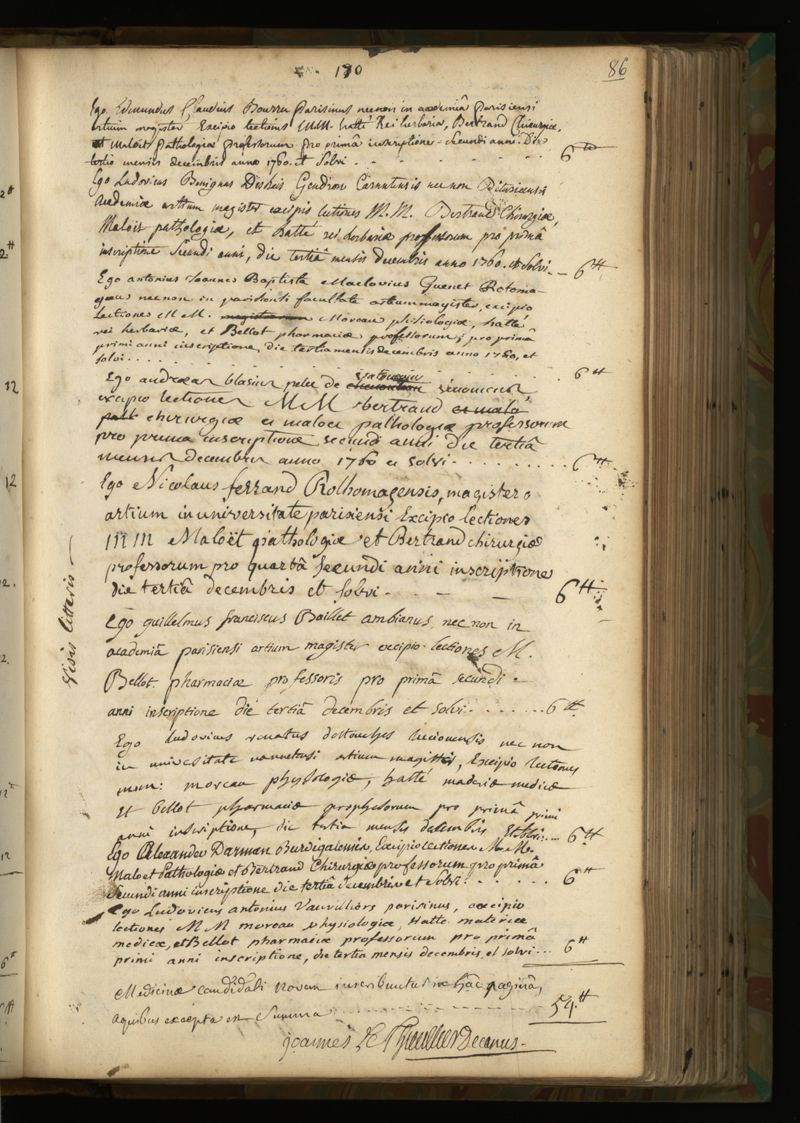 190
86
Ego Edmundus Claudius Bourru parisinus necnon in academiâ parisiensi
artium magister Excipio lectiones MM. hatté Rei herbariæ, Bertrand Chirurgiæ,
et Maloët Pathologiæ professorum pro primâ inscriptione secundi anni. Die
tertio mensis decembris anno 1760. et Solvi - - - - - - 6 tt
Ego Ludovicus Benignus Gendron Carnutensis nec non
Academiæ artium magister excipio lectiones M. M. Bertrand Chirurgiæ,
Maloët pathologiæ, et hatté rei herbariæ professorum pro primâ
inscriptione secundi anni, die tertiâ mensis decembris anno 1760. et Solvi - - 6 tt
Ego antonius Joannes Baptista Maclovius Quenet Rotoma-
gæus necnon in parisiensi facultate artium magister, excipio
lectiones M M. Moreau phisiologiæ, hatté
rei herbariæ, et Bellot pharmaciæ professorum, pro primâ
primi anni inscriptione, die tertia mensis decembris anno 1760, et
solvi . . . . . . 6 tt
Ego andreas blasius pelée de varennes senonensis
excipio lectiones MM bertrand
chirurgiæ et maloet pathologiæ professorum
pro prima inscriptione secundi anni die tertiâ
mensis decembris anno 1760 et solvi - . . . . . . . 6 tt
Ego Nicolaus ferrand Rothomagensis, magister
artium in universitate parisiensi Excipio lectiones
MM Maloët pathologiæ et Bertrand chirurgiæ
professorum pro quartâ secundi anni inscriptione
die tertiâ decembris et solvi - . - - 6 tt
visis litteris
Ego guillelmus franciscus Baillet ambianus, nec non in
academiâ parisiensi artium magister excipio lectiones M.
Bellot pharmaciæ professoris pro primâ secundi
anni inscriptione die tertiâ decembris et solvi . . . . . . . 6 tt
Ego Ludovicus renatus destouches lucionensis nec non
in universitate nannetensi artium magister, Excipio lectiones
mm: moreau physologiæ, hatté materiæ medicæ
Et bellot pharmaciæ prophesorum pro primâ primi
anni inscriptione, die tertia mensis decembris Et solvi: -- 6 tt
Ego Alexander Darman Burdigalensis, Excipio lectiones M. M.
Maloet Pathologiæ et Bertrand Chirurgiæ professorum pro primâ
secundi anni inscriptione die tertiâ decembris et Solvi . . . . . . 6 tt
Ego Ludovicus antonius Vauvilliers parisinus, excipio
lectiones M M moreau physiologiæ, Hatté materiæ
medicæ, et Bellot pharmaciæ professorum pro primâ
primi anni inscriptione, die tertia mensis decembris, et solvi . . . 6 tt
Medicinæ candidati novem inscribuntur in hâc paginâ,
a quibus excepta est Summa - - - - - - 54 tt
Joannes Le Thieullier Decanus.